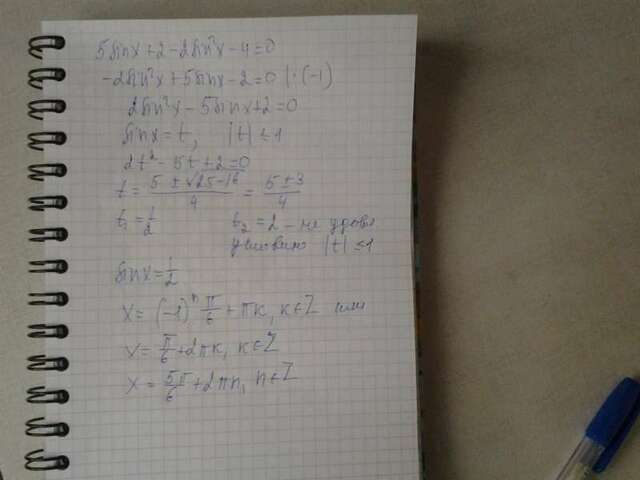 5sinx+2-2sin²x-4=0
-2sin²x+5sinx-2=0 |:(-1)
2sin²x-5sinx+2=0
sinx=t, |t|≤1
2t²-5t+2=0
t=(5±√25-16)/4=(5±3)/4
t₁=1/2 t₂=2-не удовл
условию |t|≤1
sinx=1/2
x=(-1)ⁿπ/6+πк, к∈Z или
x=π/6+2πк, к∈Z
x=5π/6+2πn, n∈Z